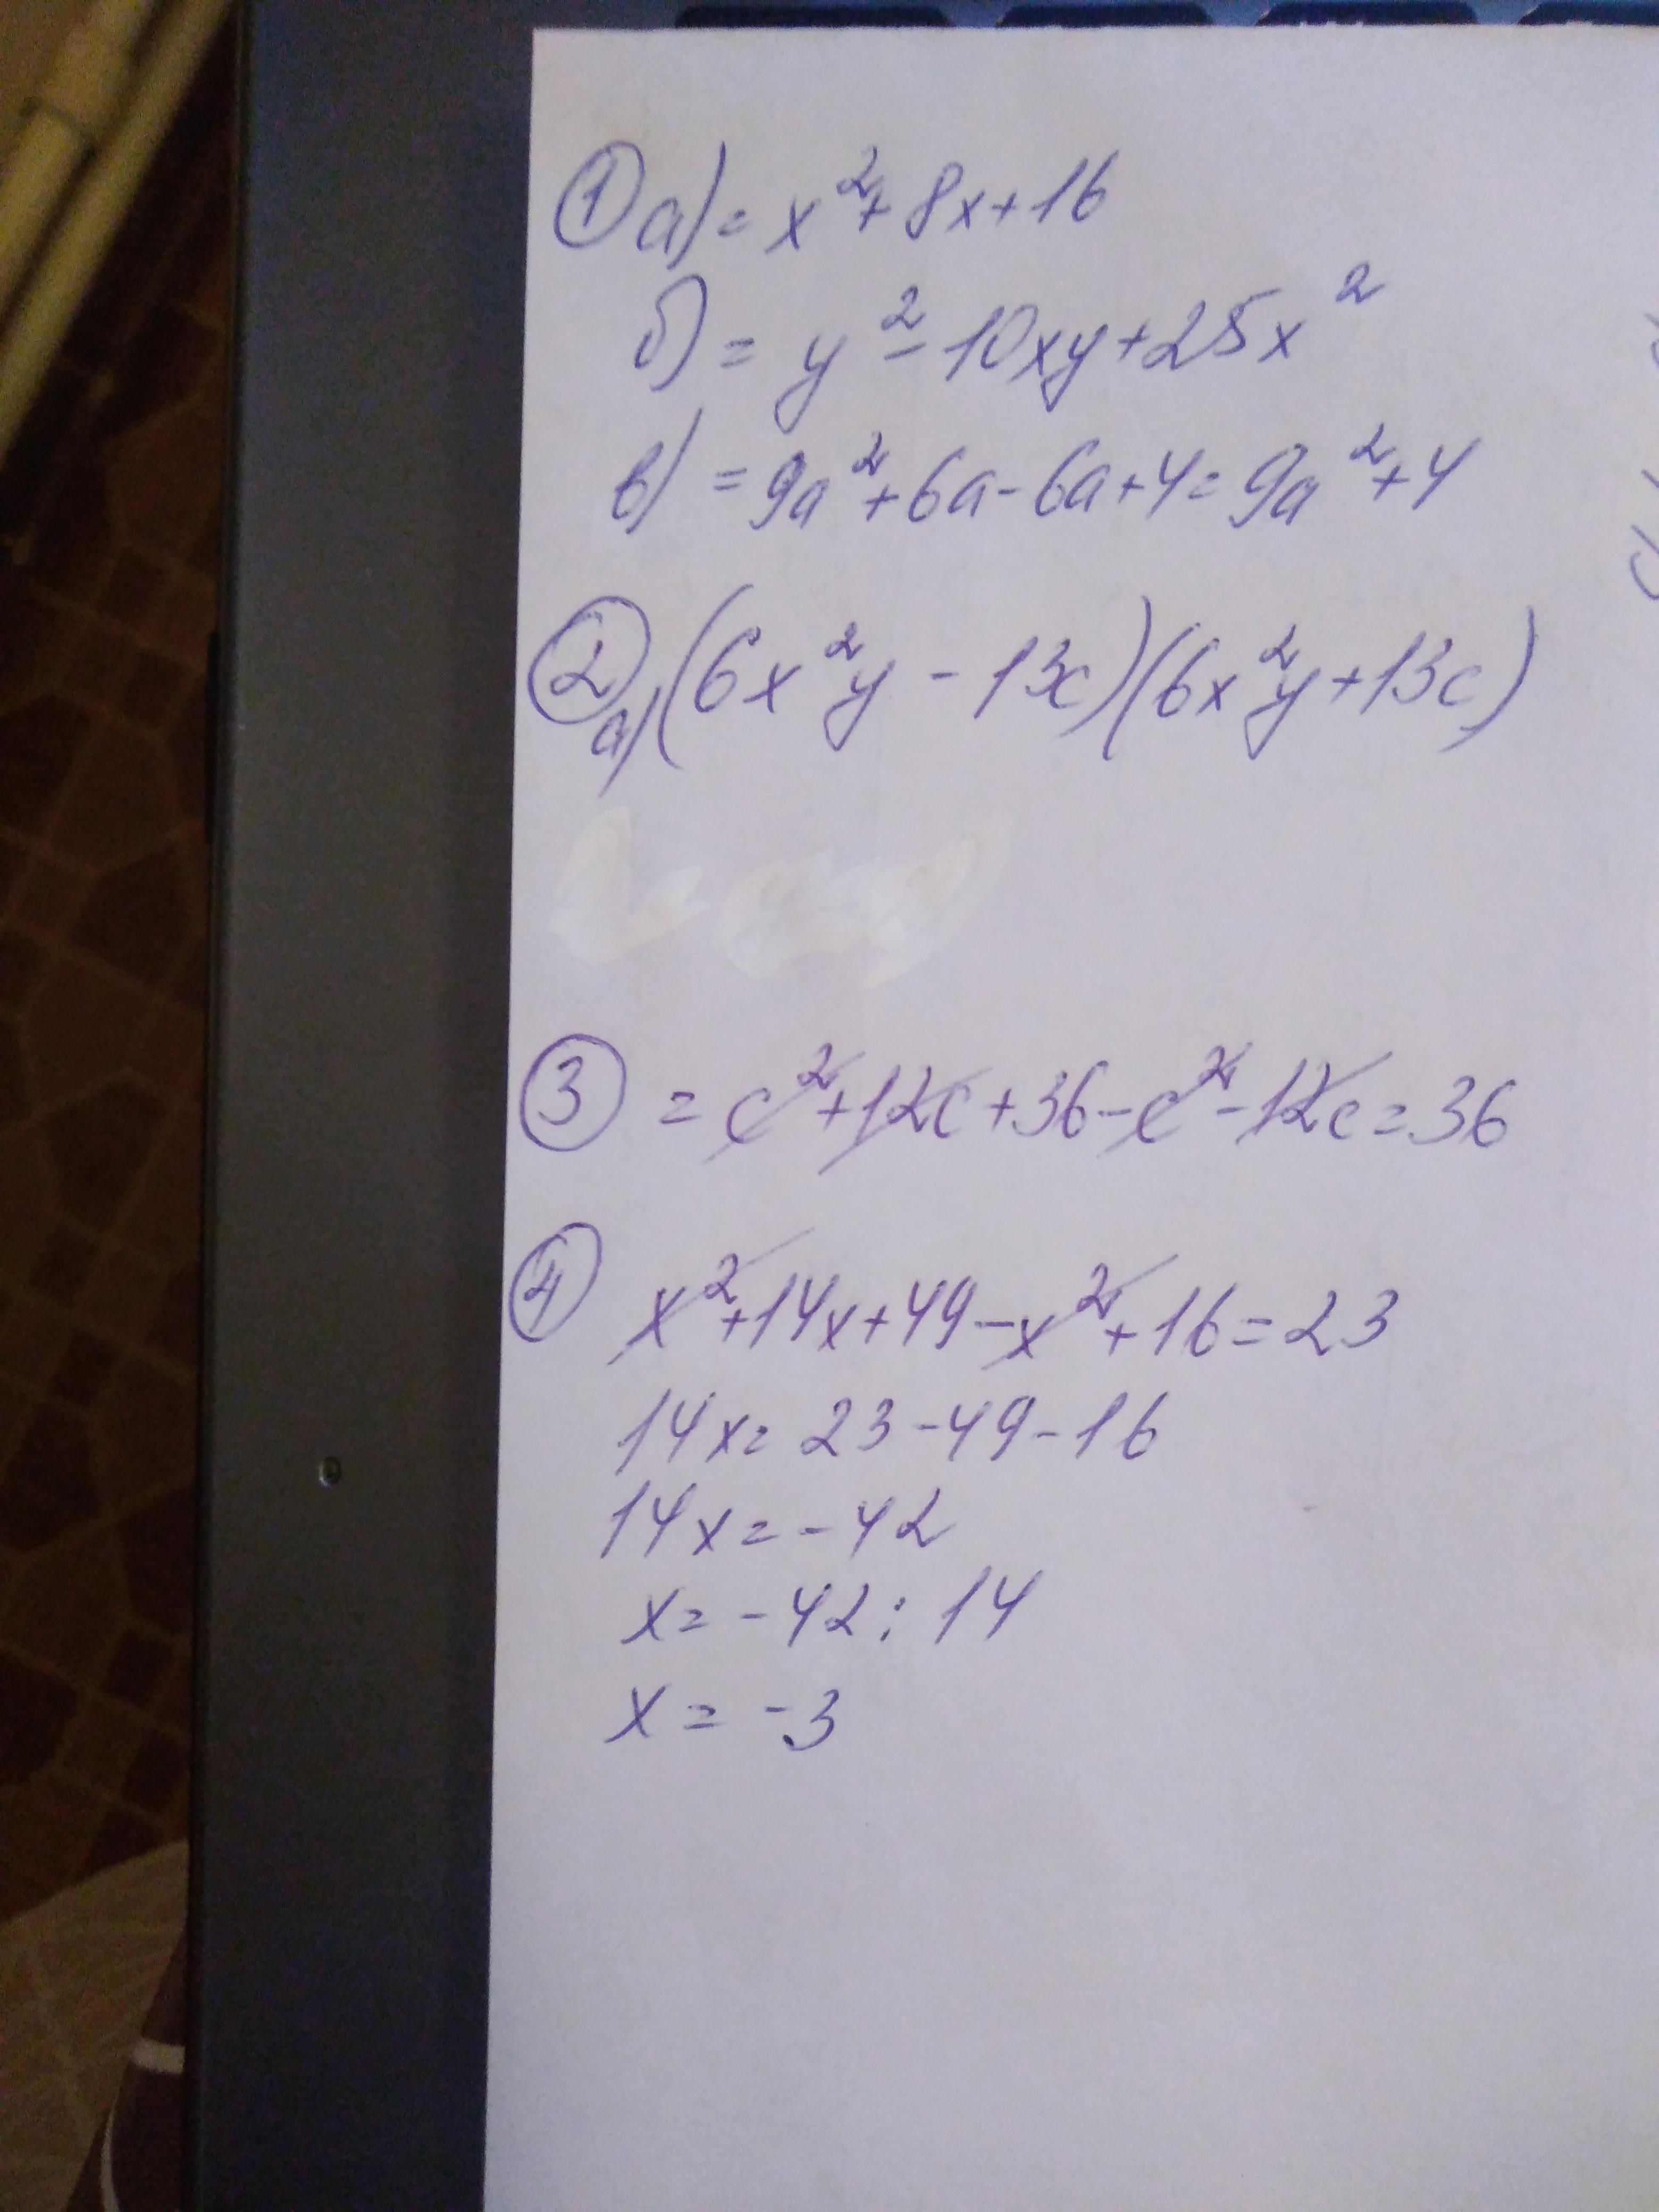 ① а) = x²+8x+16
б) = y²-10xy+25x²
в) = 9a²+6a-6a+4=9a²+4
② а) (6x²y-13c)(6x²y+13c)
③ = c²+12c+36-c²-12c=36
④ x²+14x+49-x²+16=23
14x=23-49-16
14x=-42
x=-42:14
x=-3